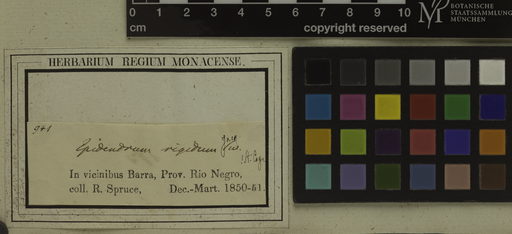 0 1 2 3 4 5 6 7 8 9 10
cm
copyright reserved
BOTANISCHE
STAATSSAMMLUNG
MÜNCHEN
HERBARIUM REGIUM MONACENSE.
941
Epidendrum rigidum Jacq.
In vicinibus Barra, Prov. Rio Negro,
coll. R. Spruce, Dec.-Mart. 1850-51.